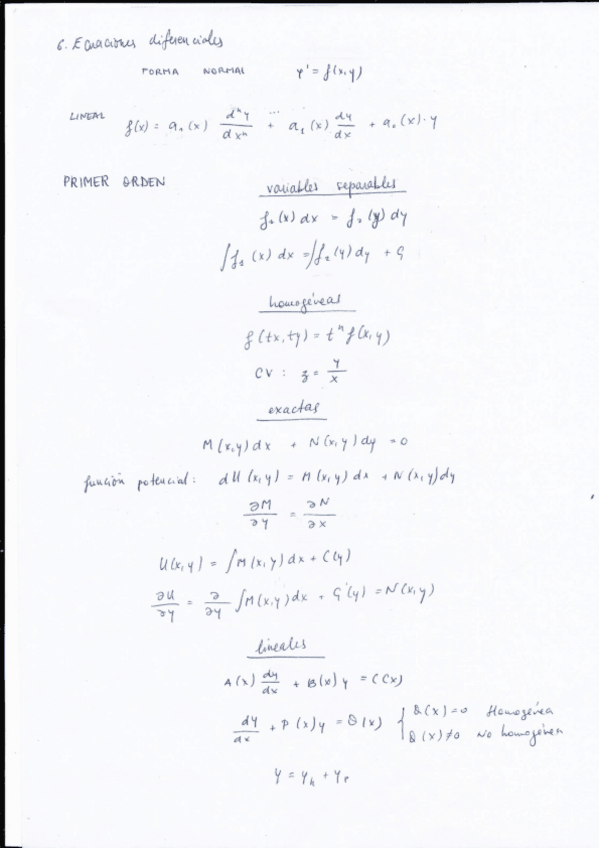 6. Ecuaciones diferenciales
FORMA NORMAL y' = f(x,y)
LINEAL f(x) = aₙ(x) dⁿy/dxⁿ + ... a₁(x) dy/dx + a₀(x)·y
PRIMER ORDEN variables separables
f₁(x) dx = f₂(y) dy
∫f₁(x) dx = ∫f₂(y) dy + C
homogéneas
f(tx,ty) = tⁿ f(x,y)
CV: z = y/x
exactas
M(x,y)dx + N(x,y)dy = 0
función potencial: dU(x,y) = M(x,y)dx + N(x,y)dy
∂M/∂y = ∂N/∂x
U(x,y) = ∫M(x,y)dx + C(y)
∂U/∂y = ∂/∂y ∫M(x,y)dx + C'(y) = N(x,y)
lineales
A(x) dy/dx + B(x)y = C(x)
dy/dx + P(x)y = Q(x) { Q(x)=0 Homogénea
Q(x)≠0 No homogénea
y = yₕ + yₚ